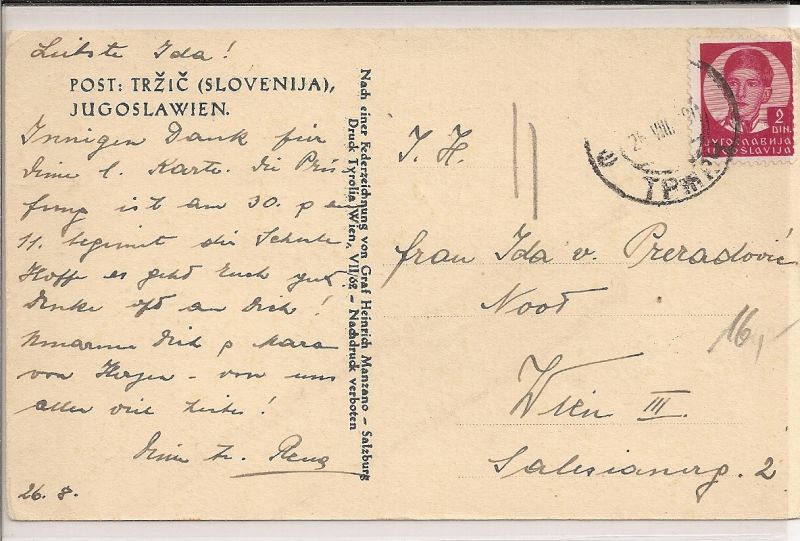 Liebste Ida!
POST: TRŽIČ (SLOVENIJA),
JUGOSLAWIEN.
Innigen Dank für
Deine l. Karte. Die Prü
fung ist am 30. am
11. beginnt die Schule
Hoffe es geht Euch gut
Denke oft an Dich!
Umarme Dich Mara
von Herzen - von uns
allen viel Liebes!
Deine tr.
26. 8.
Nach einer Federzeichnung von Graf Heinrich Manzano – Salzburg
Druck Tyrolia, Wien, VII/62 – Nachdruck verboten
I. H.
2
DIN.
ЈУГОСЛАВИЈА
JUGOSLAVIJA
VIII
Frau Ida v. Preradović
Wien III.
Salesianerg. 2
16,